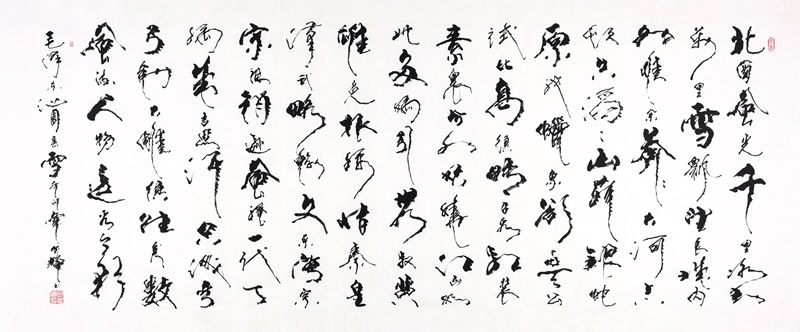 北国風光千里冰封
萬里雪飄望長城内
外惟余莽莽大河上下
顿失滔滔山舞銀蛇
原驰蠟象欲与天公
試比高須晴日看红装
素裹分外妖娆江山如
此多娇引無数英
雄竞折腰惜秦皇
漢武略输文采唐宗
宋祖稍逊風骚一代天
骄成吉思汗只識弯
弓射大雕俱往矣数
風流人物还看今朝
毛泽东沁園春雪